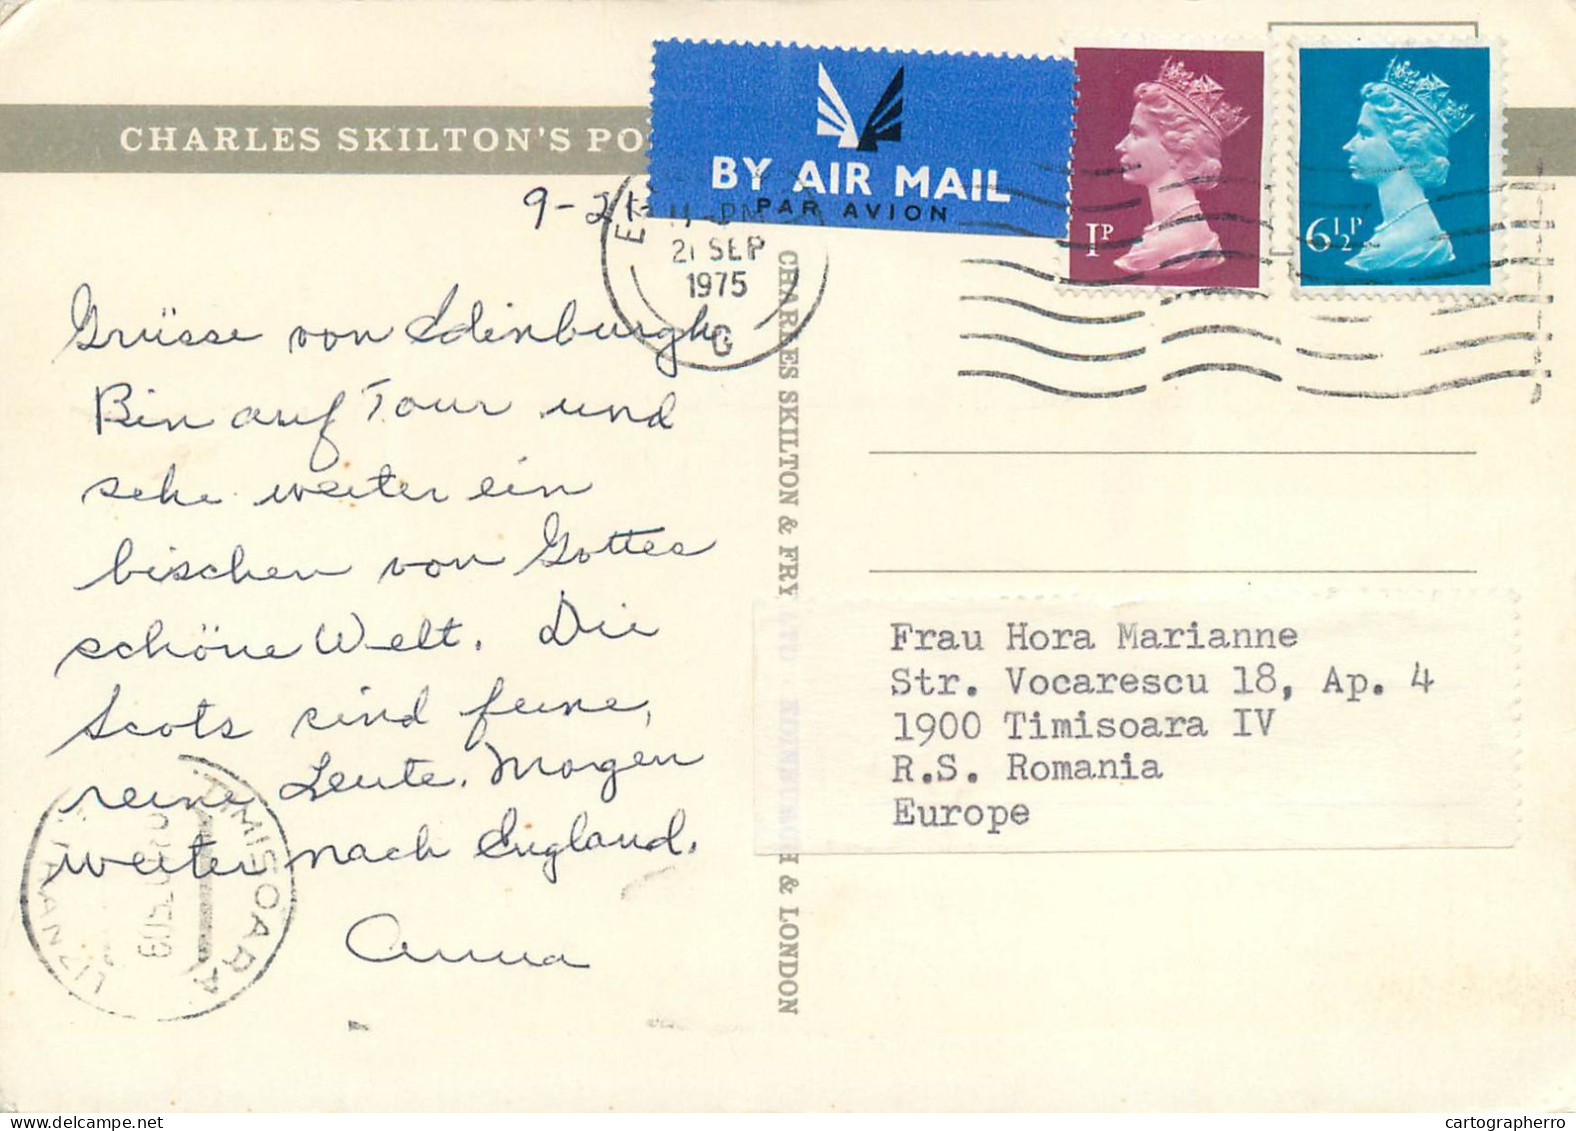 CHARLES SKILTON'S PO
BY AIR MAIL
PAR AVION
1P
6½P
9-21-
21 SEP
1975
G
Grüsse von Edinburgh.
Bin auf Tour und
sehe weiter ein
bischen von Gottes
schöne Welt. Die
Scots sind feine,
reine Leute. Morgen
weiter nach England.
Anna
CHARLES SKILTON & FRY LTD · EDINBURGH & LONDON
Frau Hora Marianne
Str. Vocarescu 18, Ap. 4
1900 Timisoara IV
R.S. Romania
Europe
TIMISOARA
TRANZIT
cartographerro